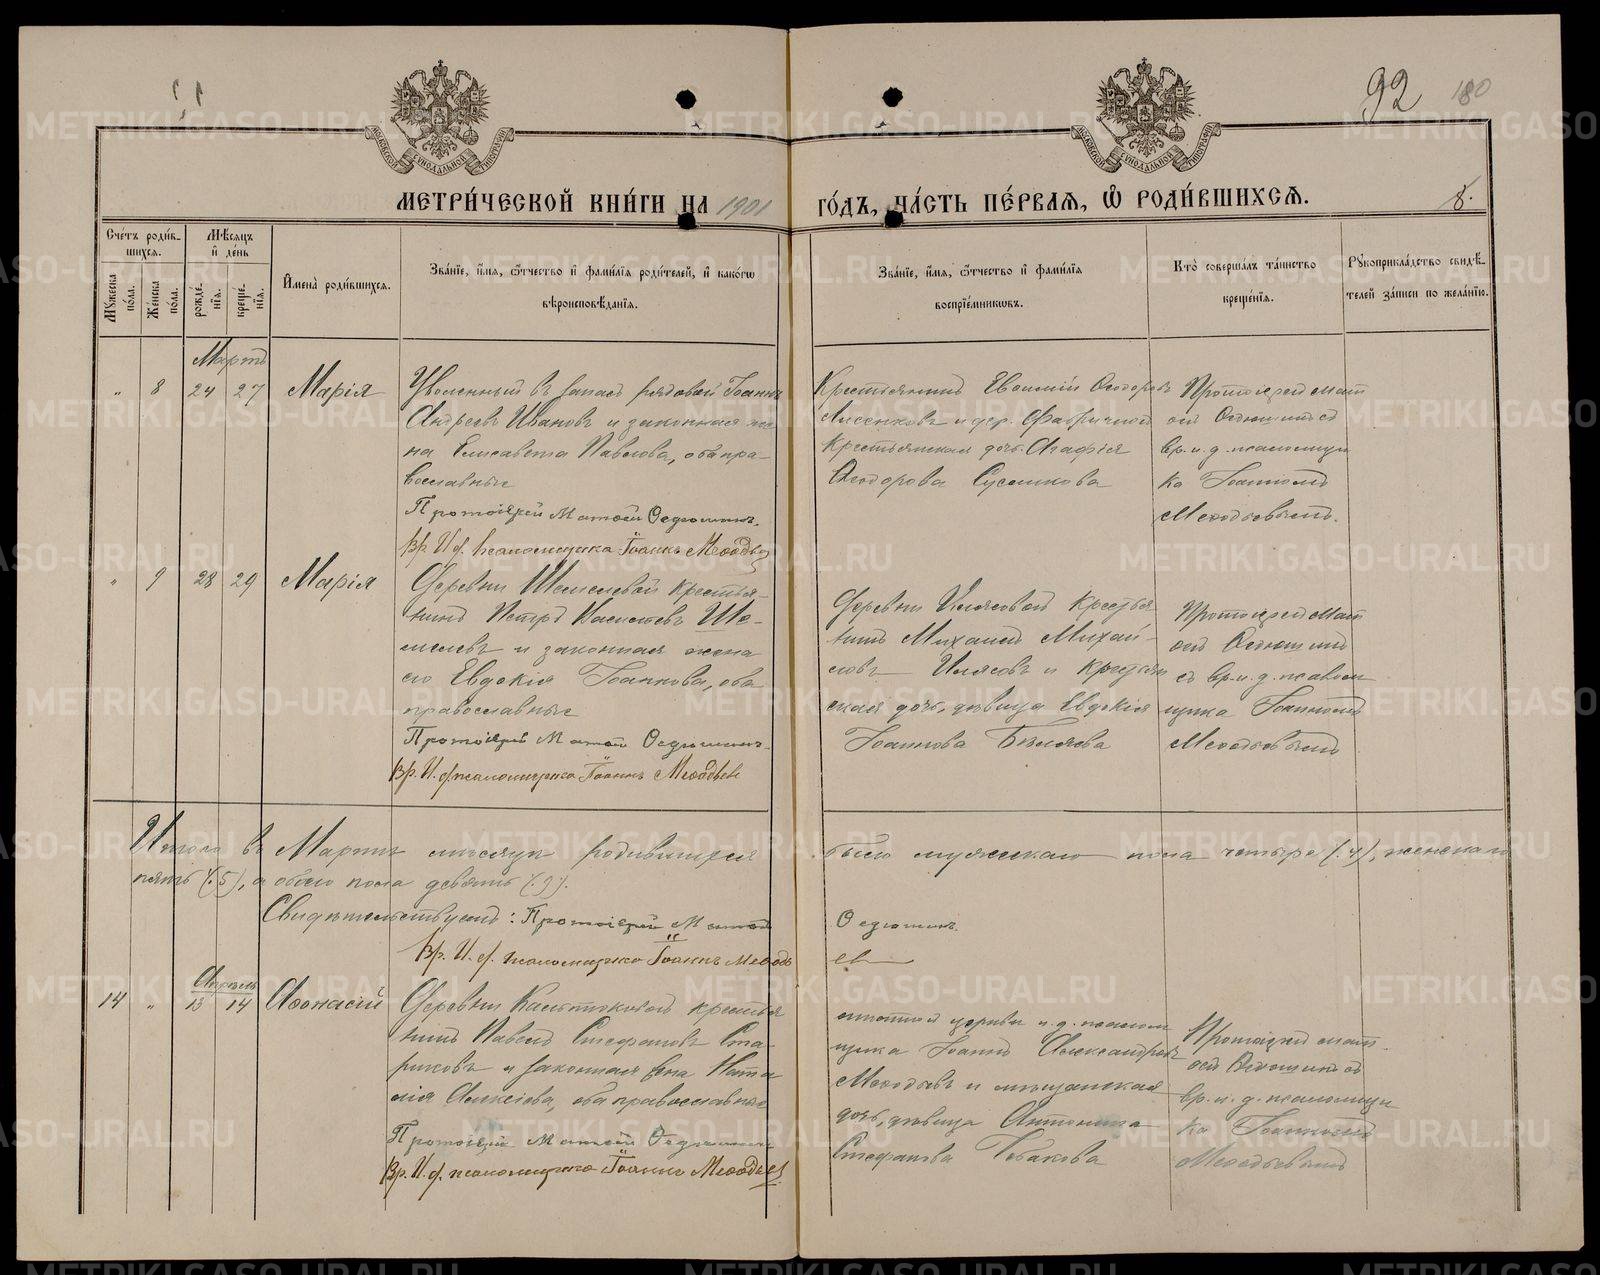 92
180
МОСКОВСКОЙ СѴНОДАЛЬНОЙ ТИПОГРАФІИ
МОСКОВСКОЙ СѴНОДАЛЬНОЙ ТИПОГРАФІИ
МЕТРИ́ЧЕСКОЙ КНИ́ГИ НА 1901 ГО́ДЪ, ЧА́СТЬ ПЕ́РВАѦ, Ѡ҆ РОДИ́ВШИХСѦ.
8.
Сче́тъ роди́в-
шихсѧ.
Мꙋ́жеска по́ла.
Же́нска по́ла.
Мѣ́сѧцъ и҆ де́нь
рожде́-нїѧ.
креще́-нїѧ.
И҆мена̀ роди́вшихсѧ.
Зва́нїе, и҆́мѧ, ѻ҆́тчество и҆ фами́лїѧ роди́телей, и҆ како́гѡ
вѣроисповѣ́данїѧ.
Зва́нїе, и҆́мѧ, ѻ҆́тчество и҆ фами́лїѧ
воспрїе́мникѡвъ.
Кто̀ соверша́лъ та́инство
креще́нїѧ.
Рꙋкоприкла́дство свидѣ́-
телей за́писи по жела́нїю.
Мартъ
" 8 24 27 Марія
Уволенный въ запасъ рядовой Іоаннъ
Андреевъ Ивановъ и законная же-
на Елисавета Павлова, оба пра-
вославные
Протоіерей Матѳей Ѳедюшинъ.
Вр. И. д. псаломщика Іоаннъ Меѳодьевъ
Крестьянинъ Евѳимій Ѳеодоровъ
и дер. Фабричной
крестьянская дочь Агафія
Ѳеодорова Сусликова
Протоіерей Мат
ѳей Ѳедюшинъ съ
вр. и. д. псаломщи
ка Іоанномъ
Меѳодьевымъ.
" 9 28 29 Марія
Деревни Шемелевой крестья-
нинъ Петръ Васильевъ Ше-
мелевъ и законная жена
его Евдокія Іоаннова, оба
православные
Протоіерей Матѳей Ѳедюшинъ.
Вр. И. д. псаломщика Іоаннъ Меѳодьевъ
Деревни Илясовой крестья
нинъ Михаилъ Михай-
ловъ Илясовъ и крестьян
ская дочь, дѣвица Евдокія
Іоаннова Бѣляева
Протоіерей Мат
ѳей Ѳедюшинъ
съ вр. и. д. псалом
щика Іоанномъ
Меѳодьевымъ
Итого въ Мартѣ мѣсяцѣ родившихся было мужескаго пола четыре (.4.), женскаго
пять (.5.), а обоего пола девять (.9.).
Свидѣтельствуемъ: Протоіерей Матѳей Ѳедюшинъ.
Вр. И. д. псаломщика Іоаннъ Меѳодьевъ
Апрѣль
14 " 13 14 Аѳонасій
Деревни крестья
нинъ Павелъ Стефановъ Ста-
риковъ и законная жена Ната
лія Алексіева, оба православные
Протоіерей Матѳей Ѳедюшинъ
Вр. И. д. псаломщика Іоаннъ Меѳодьевъ
церкви и. д. псалом
щика Іоаннъ Александровъ
Меѳодьевъ и мѣщанская
дочь, дѣвица Антонина
Стефанова Чебакова
Протоіерей Мат-
ѳей Ѳедюшинъ съ
вр. и. д. псаломщи
ка Іоанномъ
Меѳодьевымъ
METRIKI.GASO-URAL.RU